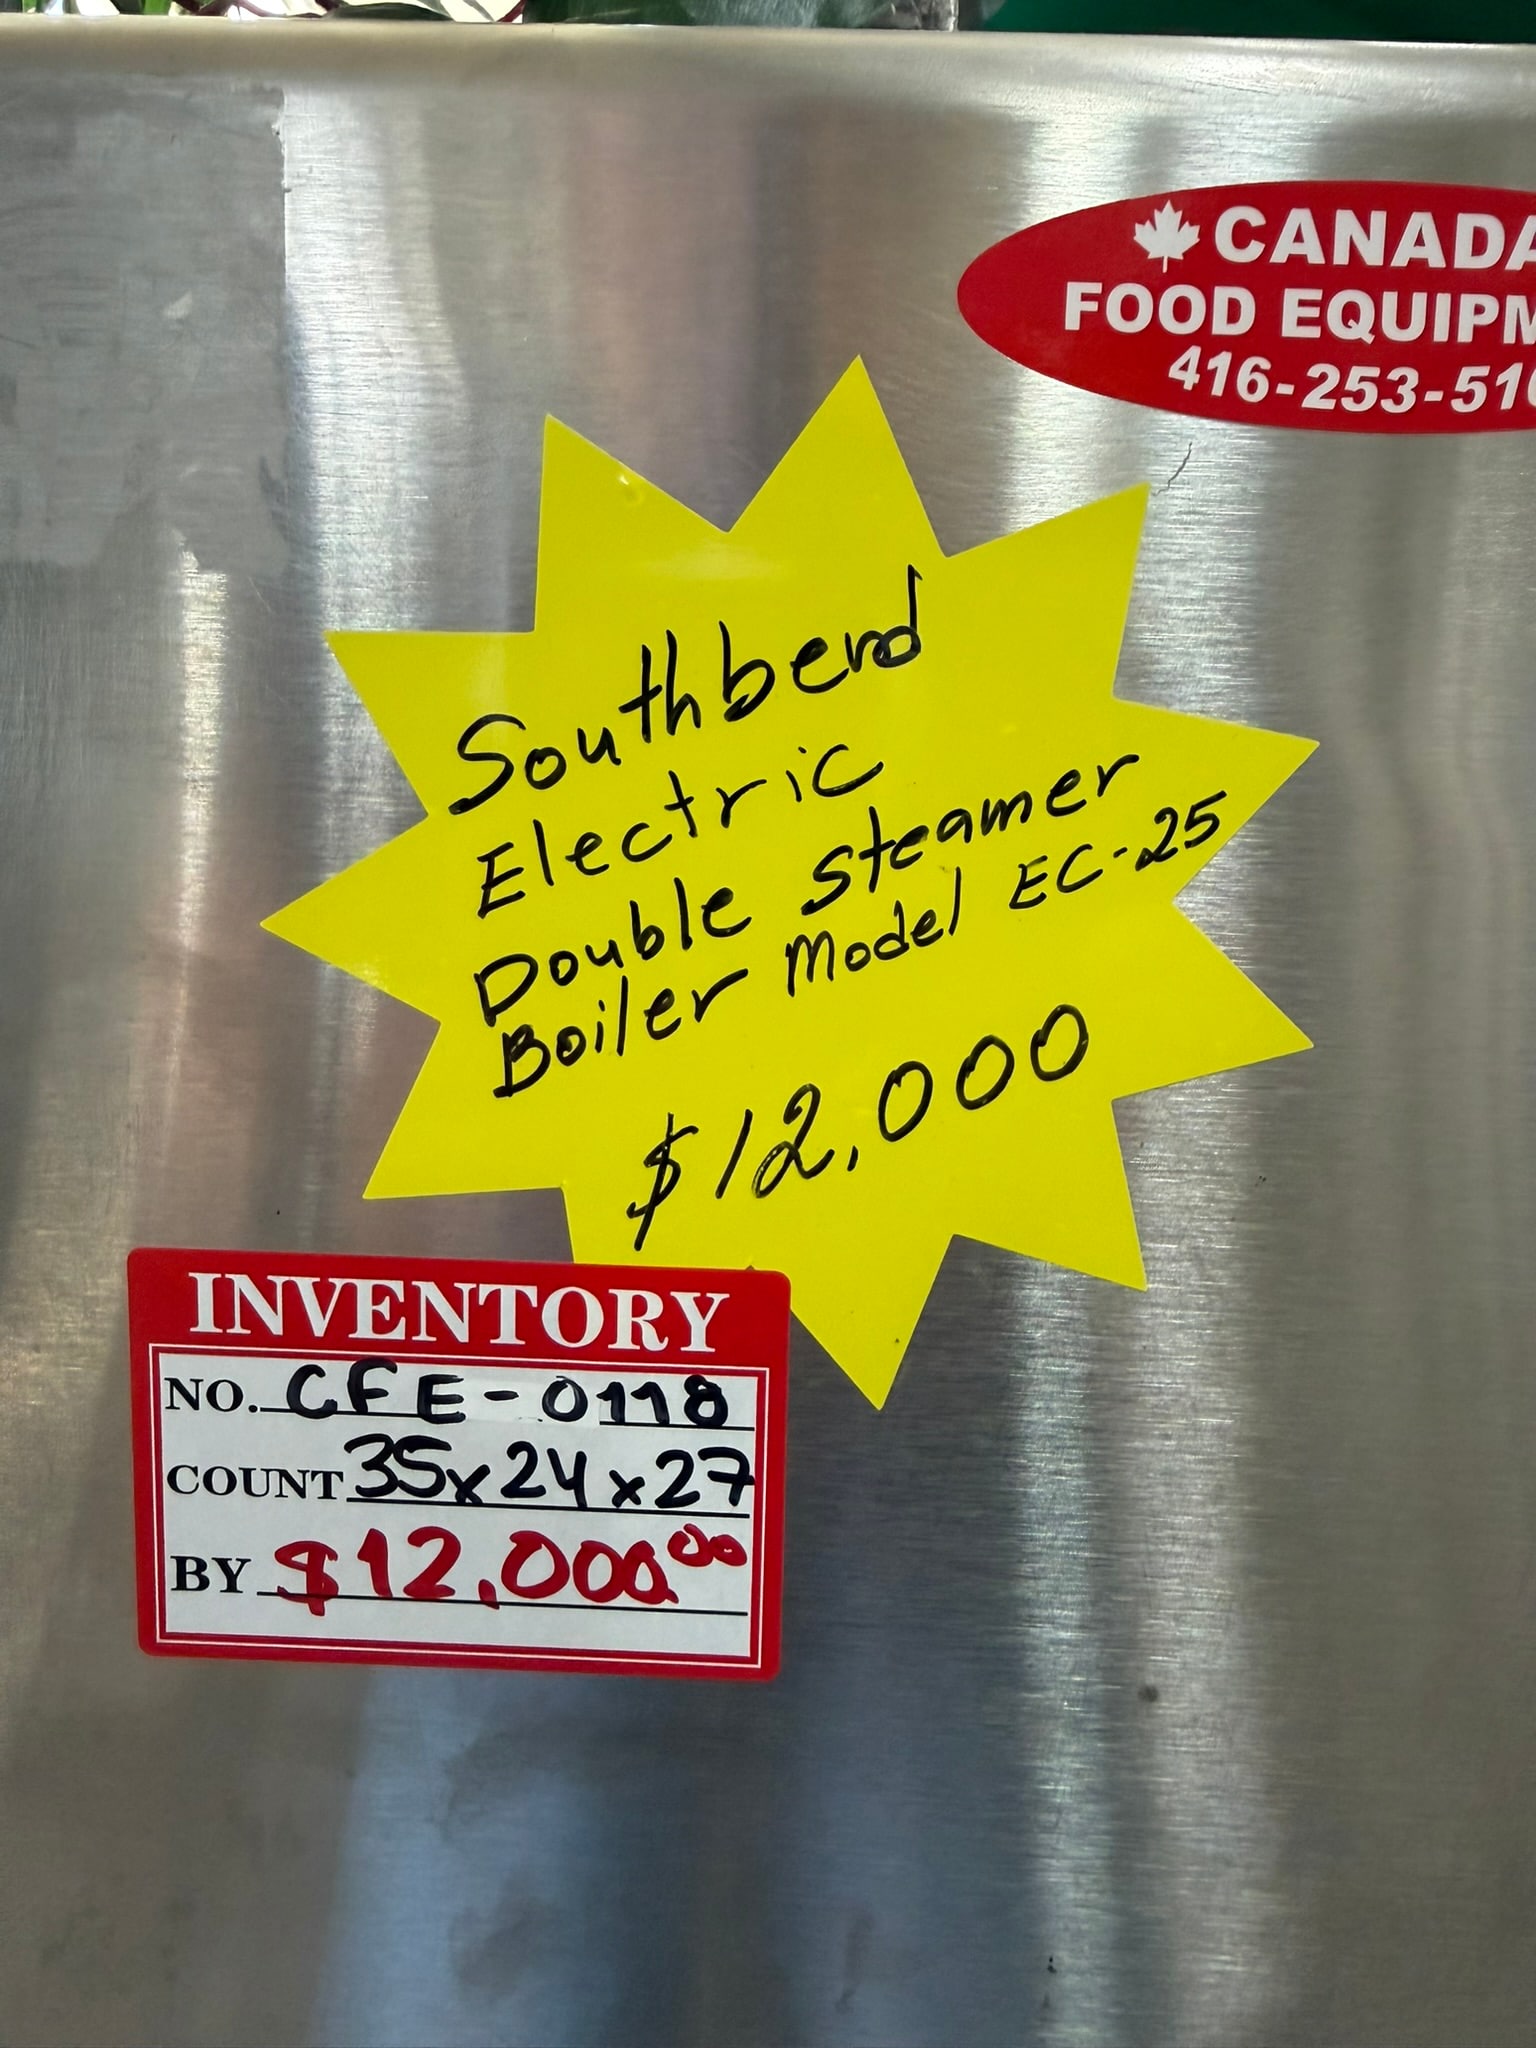 CANADA
FOOD EQUIPM
416-253-510
Southbend
Electric
Double Steamer
Boiler Model EC-25
$12,000
INVENTORY
NO. CFE-0118
COUNT 35x24x27
BY $12,000.00